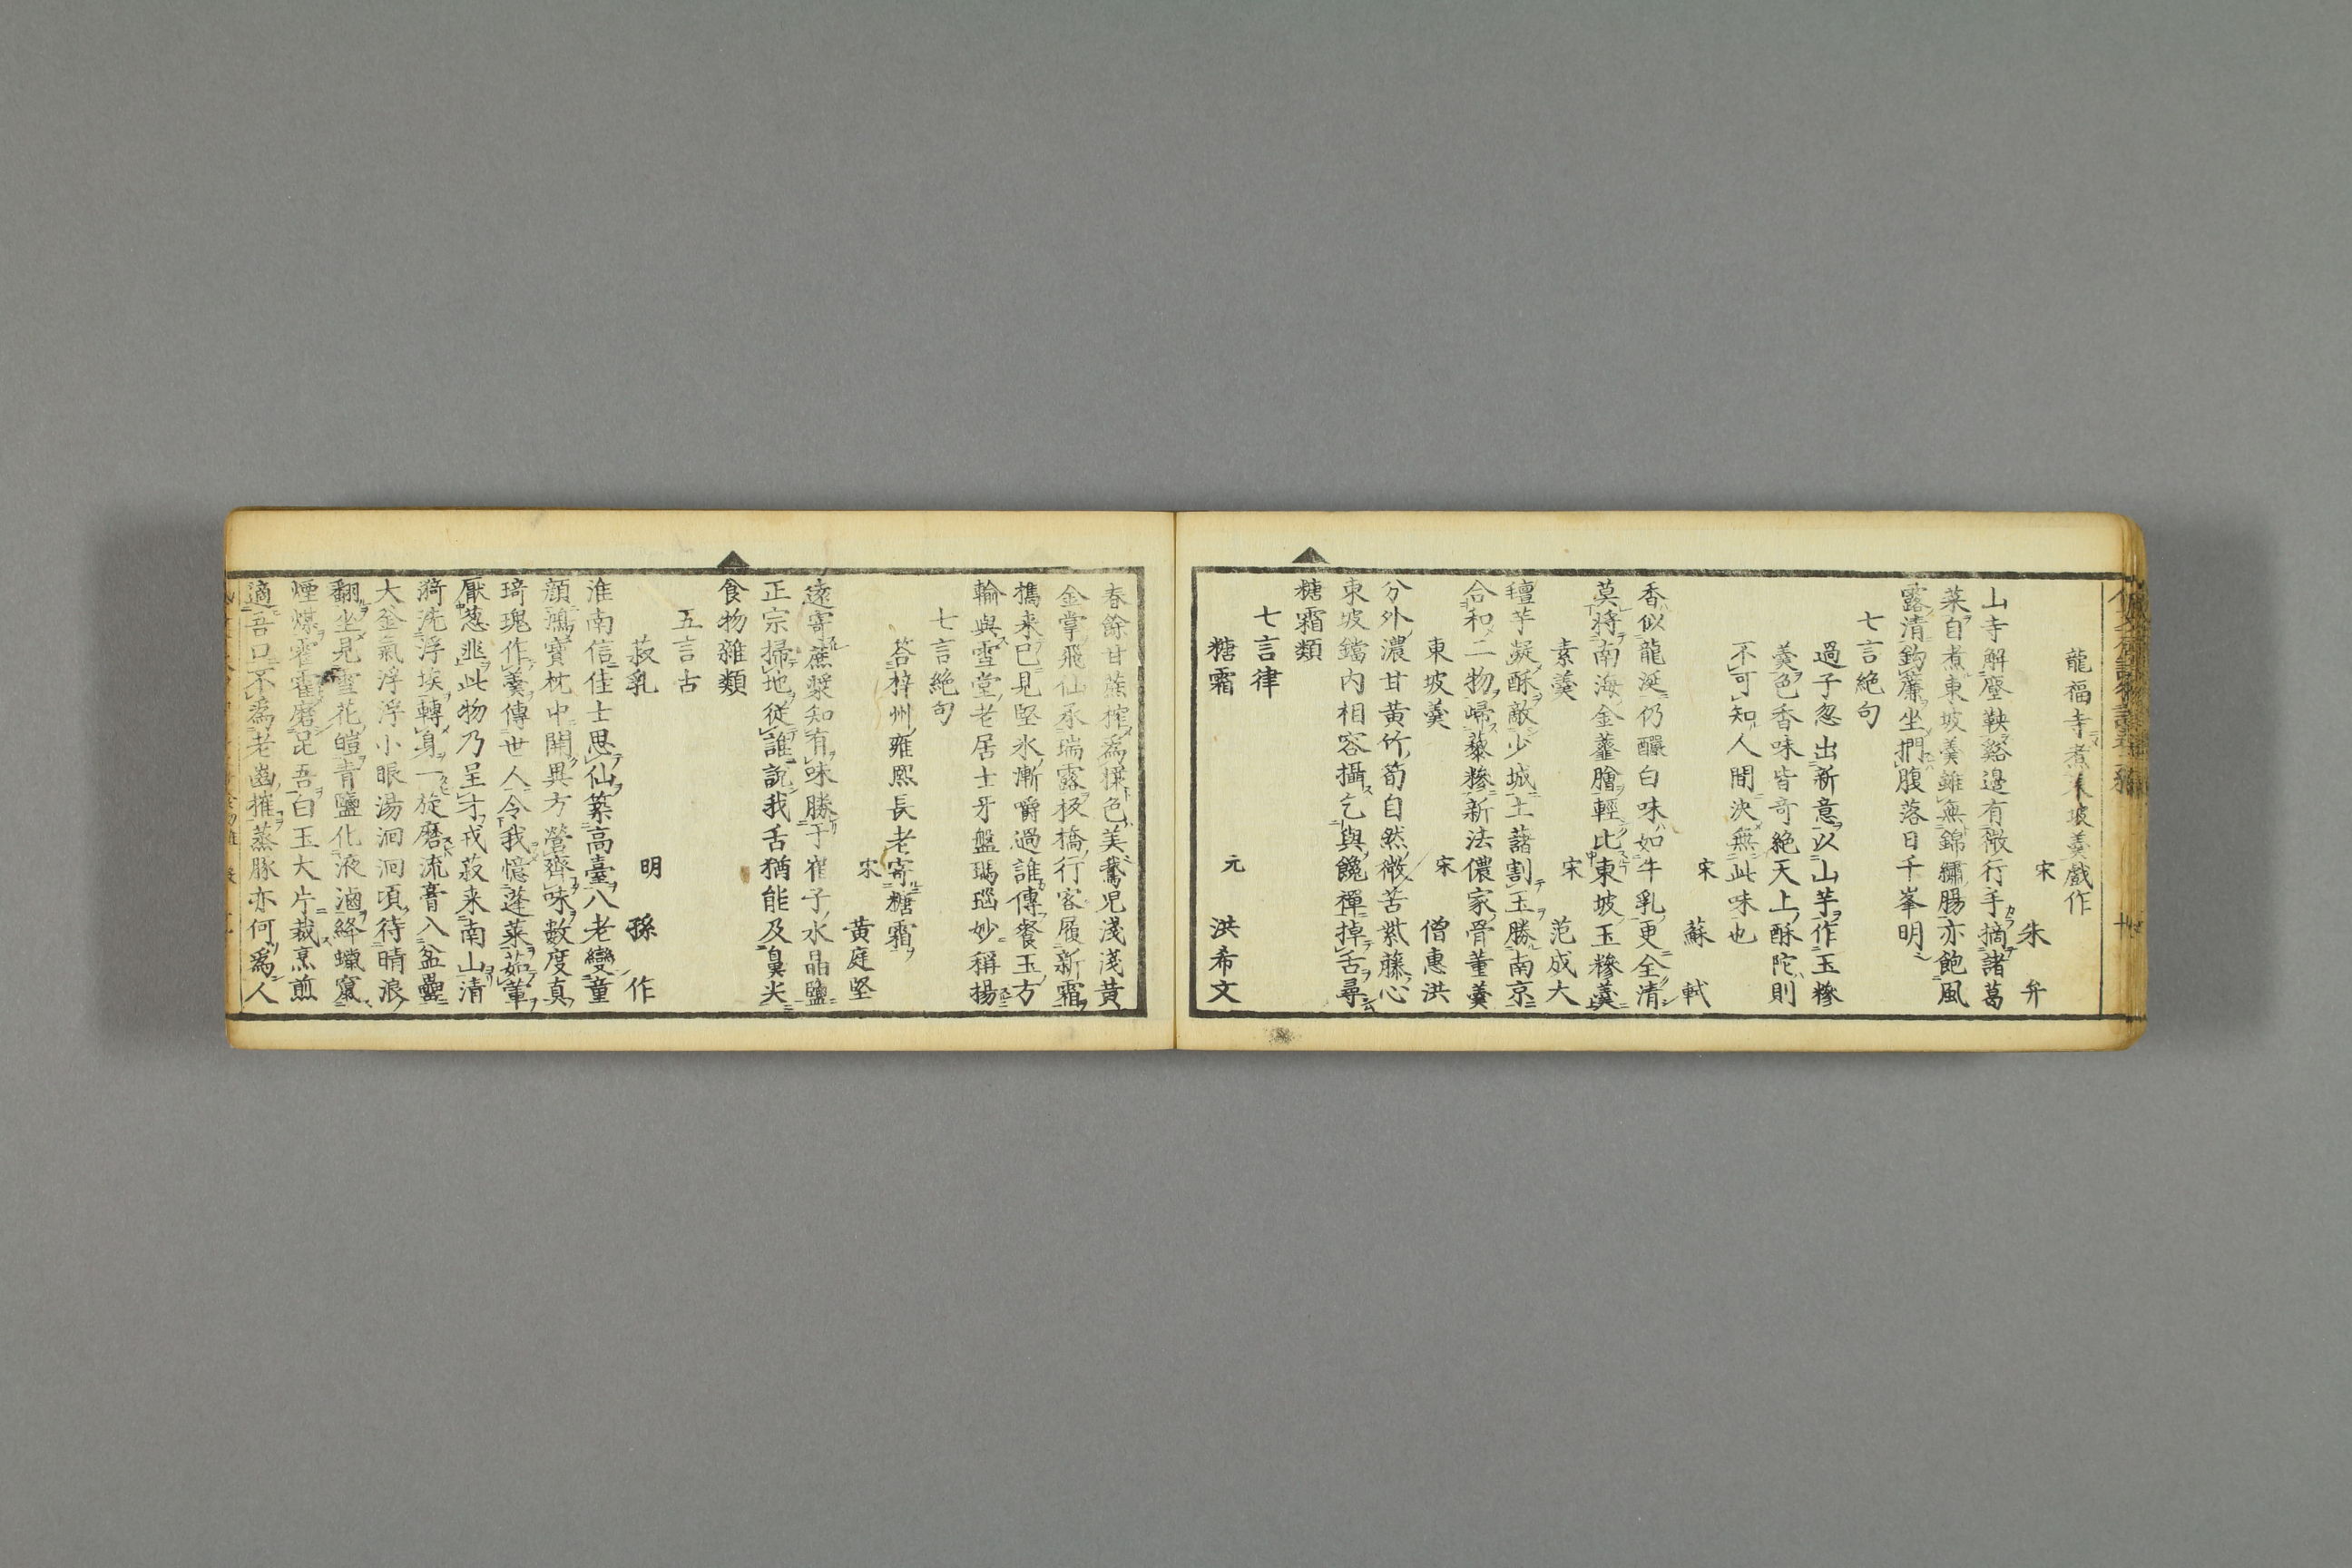 龍福寺煮東坡羹戲作
宋 朱弁
山寺解塵鞅谿邊有微行手摘諸葛
菜自煮東坡羹雖無錦繡腸亦飽風
露清鈎簾坐捫腹落日千峯明
七言絶句
過子忽出新意以山芋作玉糝
羹色香味皆奇絶天上酥陀則
不可知人間決無此味也
宋 蘇軾
香似龍涎仍釅白味如牛乳更全清
莫將南海金虀膾輕比東坡玉糝羹
素羹
宋 范成大
氊芋凝酥敵少城土藷割玉勝南京
合和二物歸藜糝新法儂家骨董羹
東坡羹
宋 僧惠洪
分外濃甘黄竹筍自然微苦紫藤心
東坡鐺内相容攝乞與饞禪掉舌尋
糖霜類
七言律
糖霜
元 洪希文
春餘甘蔗榨爲漿色美鵞児淺淺黄
金掌飛仙承瑞露板橋行客履新霜
携来已見堅氷漸嚼過誰傳餐玉方
輸與雪堂老居士牙盤瑪瑙妙稱揚
七言絶句
荅梓州雍熙長老寄糖霜
宋 黄庭堅
遠寄蔗漿知有味勝于崔子水晶鹽
正宗掃地従誰説我舌猶能及鼻尖
食物雜類
五言古
菽乳
明 孫作
淮南信佳士思仙築高臺八老變童
顔鴻寶枕中開異方營齊味數度真
琦瑰作羹傳世人令我憶蓬萊茹葷
厭葱韭此物乃呈才戎菽来南山清
漪洗浮埃轉身一旋磨流膏入盆罍
大釜氣浮浮小眼湯洄洄頃待晴浪
翻坐見雪花皚青鹽化液滷絳蠟竄
煙煤霍霍磨昆吾白玉大片裁烹煎
適吾口不爲老齒摧蒸豚亦何爲人